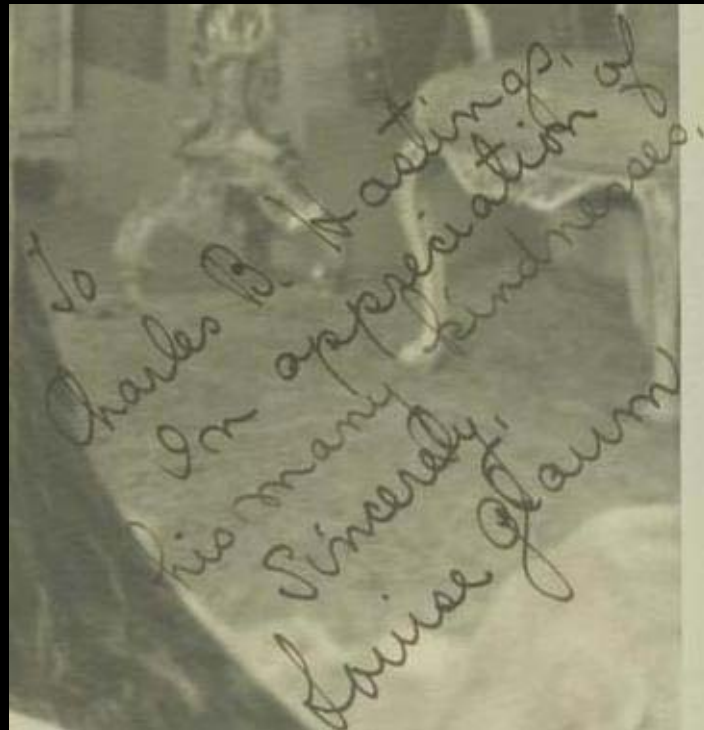 To
Charles B. Hastings,
In appreciation of
his many kindnesses,
Sincerely,
Louise Glaum